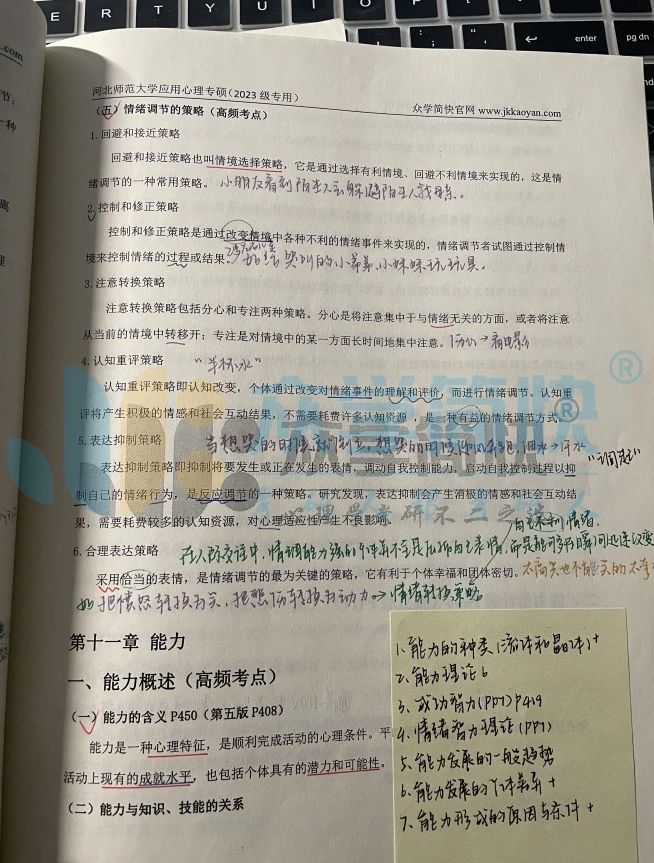 河北师范大学应用心理专硕（2023 级专用）
众学简快官网 www.jkkaoyan.com
（五）情绪调节的策略（高频考点）
1.回避和接近策略
回避和接近策略也叫情境选择策略，它是通过选择有利情境、回避不利情境来实现的，这是情
绪调节的一种常用策略。小朋友看到陌生人会躲避陌生人
2.控制和修正策略
控制和修正策略是通过改变情境中各种不利的情绪事件来实现的，情绪调节者试图通过控制情
境来控制情绪的过程或结果。如给哭叫的小弟弟、小妹妹玩玩具。
3.注意转换策略
注意转换策略包括分心和专注两种策略。分心是将注意集中于与情绪无关的方面，或者将注意
从当前的情境中转移开；专注是对情境中的某一方面长时间地集中注意。分心→看电影
4.认知重评策略 “半杯水”
认知重评策略即认知改变，个体通过改变对情绪事件的理解和评价，而进行情绪调节。认知重
评将产生积极的情感和社会互动结果，不需要耗费许多认知资源，是一种有益的情绪调节方式。
5.表达抑制策略 当想哭的时候
表达抑制策略即抑制将要发生或正在发生的表情，调动自我控制能力，启动自我控制过程以抑
制自己的情绪行为，是反应调节的一种策略。研究发现，表达抑制会产生消极的情感和社会互动结
果，需要耗费较多的认知资源，对心理适应性产生不良影响。
6.合理表达策略 在人际交谈中，情调能力强的个体并不会是压抑自己表情，而是能够在瞬间迅速改变
自己不利情绪.
采用恰当的表情，是情绪调节的最为关键的策略，它有利于个体幸福和团体密切。
如把愤怒转换为笑，把悲伤转换为动力→情绪转换策略
第十一章 能力
一、能力概述（高频考点）
（一）能力的含义 P450（第五版 P408）
能力是一种心理特征，是顺利完成活动的心理条件。平
活动上现有的成就水平，也包括个体具有的潜力和可能性。
（二）能力与知识、技能的关系
1.能力的种类（流体和晶体）+
2.能力理论6
3.成功智力(PPT) P419
4.情绪智力理论(PPT)
5.能力发展的一般趋势
6.能力发展的个体差异+
7.能力形成的原因与条件+
众学简快
心理学考研不二之选
enter
pg dn